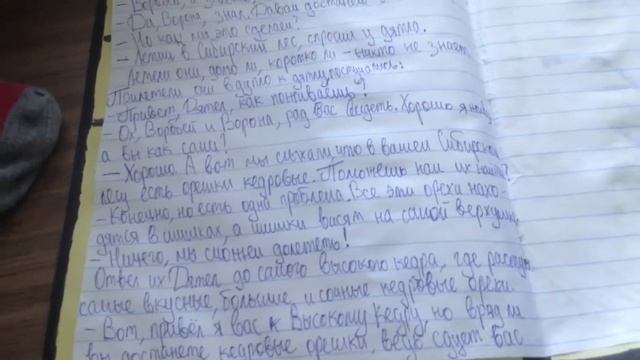 - Да Ворона, знал. Давай достанем
- Но как мы это сделаем?
- Летим в Сибирский лес, спросим у дятла.
Летели они, долго ли, коротко ли - никто не знает.
Прилетели они в дупло к дятлу, постучались:
- Привет, Дятел, как поживаешь?
- Ох, Воробей и Ворона, рад Вас видеть. Хорошо я
а вы как сами?
- Хорошо. А вот мы слыхали, что в вашем Сибирском
лесу есть орешки кедровые. Поможешь нам их найти?
- Конечно, но есть одна проблема. Все эти орехи нахо-
дятся в шишках, а шишки висят на самой верхушке
- Ничего, мы сможем долететь!
Отвёл их Дятел до самого высокого кедра, где растут
самые вкусные, большие и сочные кедровые орехи.
- Вот, привёл я вас к Высокому Кедру, но вряд ли
вы достанете кедровые орешки, ведь Вас